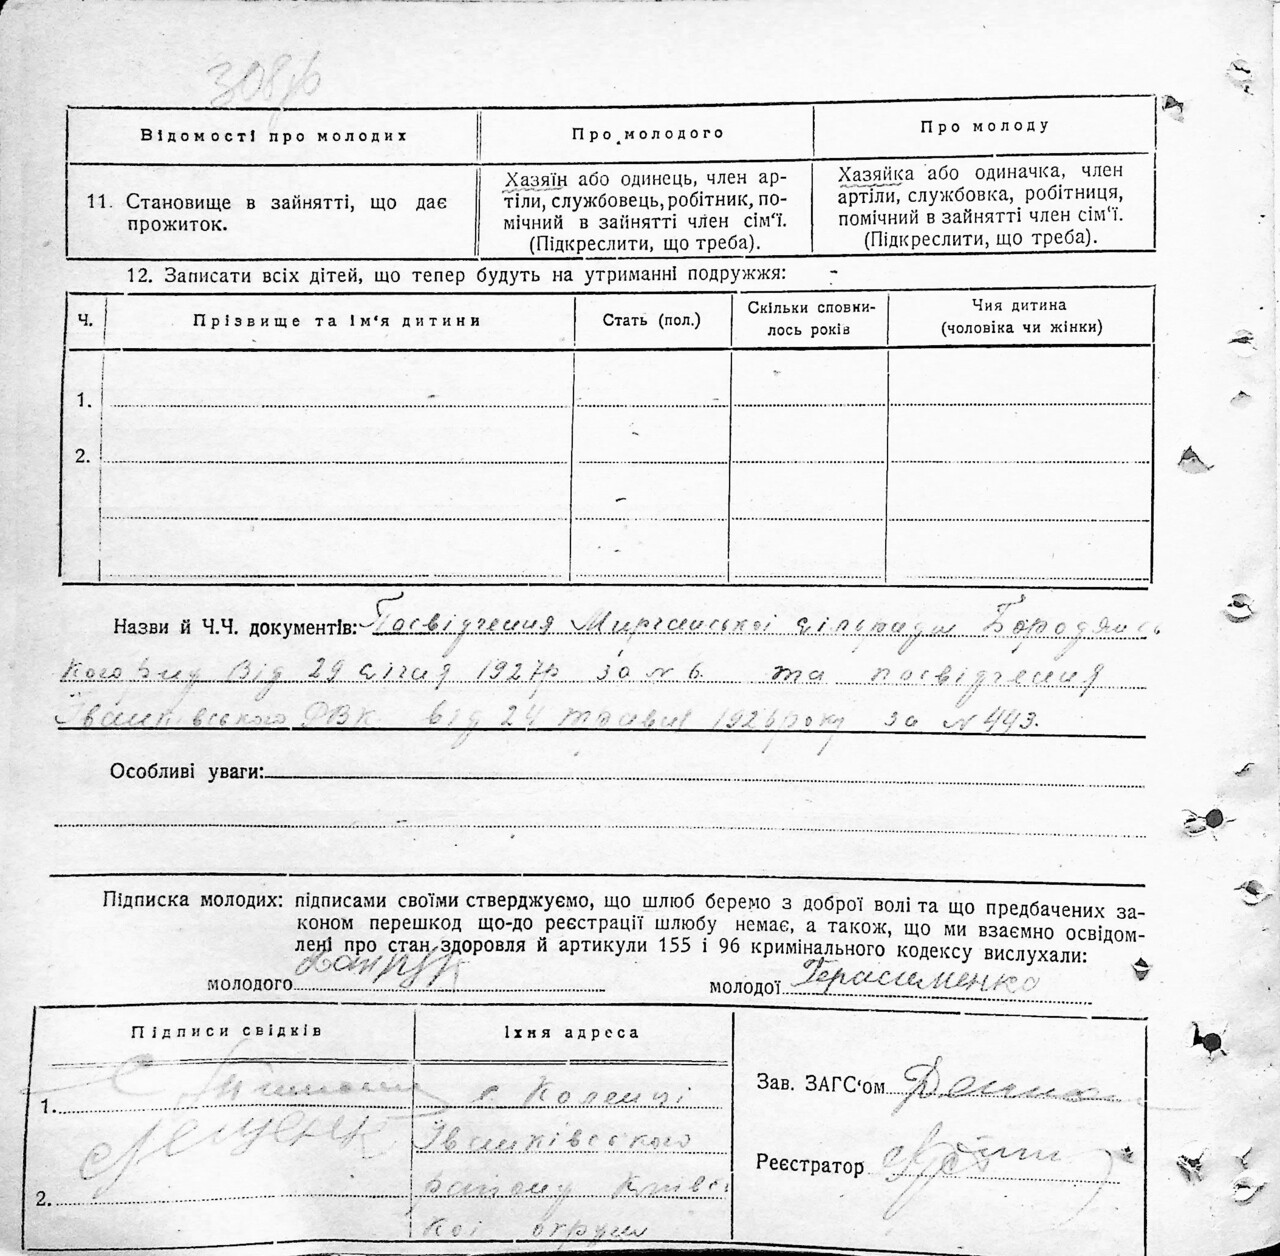 Відомості про молодих
Про молодого
Про молоду
11. Становище в зайнятті, що дає
прожиток.
Хазяїн або одинець, член ар-
тіли, службовець, робітник, по-
мічний в зайнятті член сім'ї.
(Підкреслити, що треба).
Хазяйка або одиначка, член
артіли, службовка, робітниця,
помічний в зайнятті член сім'ї.
(Підкреслити, що треба).
12. Записати всіх дітей, що тепер будуть на утриманні подружжя: -
Ч.
Прізвище та ім'я дитини
Стать (пол.)
Скільки сповни-
лось років
Чия дитина
(чоловіка чи жінки)
1.
2.
Назви й Ч.Ч. документів: Посвідчення сільради Бородянсь
кого р-ну Від 29 січня 1927р за № 6 та посвідчення
Іванківського РВК від 24 травня року за № 443.
Особливі уваги:
Підписка молодих: підписами своїми стверджуємо, що шлюб беремо з доброї волі та що предбачених за-
коном перешкод що-до реєстрації шлюбу немає, а також, що ми взаємно освідом-
лені про стан здоровля й артикули 155 і 96 кримінального кодексу вислухали:
молодого
молодої Герасименко
Підписи свідків
Їхня адреса
1.
2.
с. Коленці
Іванківського
району Київсь
кої округи
Зав. ЗАГС'ом
Реєстратор